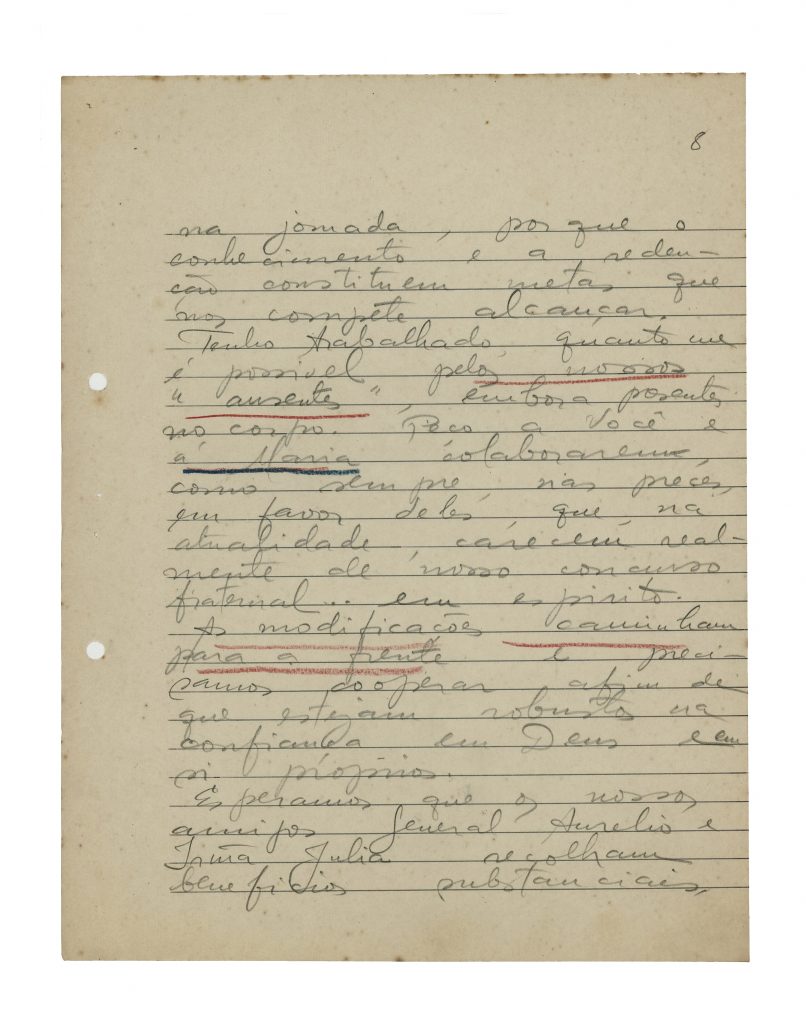 8
na jornada, porque o
conhecimento e a reden-
ção constituem metas que
nos compete alcançar.
Tenho trabalhado, quanto me
é possivel pelos nossos
"ausentes", embora presentes
no corpo. Peço a Você e
á Maria colaborarem,
como sempre nas preces,
em favor deles que na
atualidade, carecem real-
mente de nosso concurso
fraternal... em espirito.
As modificações caminham
para a frente e preci-
samos cooperar afim de
que estejam robustos na
confiança em Deus e em
si próprios.
Esperamos que os nossos
amigos General Aurelio e
Irmã Julia recolham
beneficios substanciais,